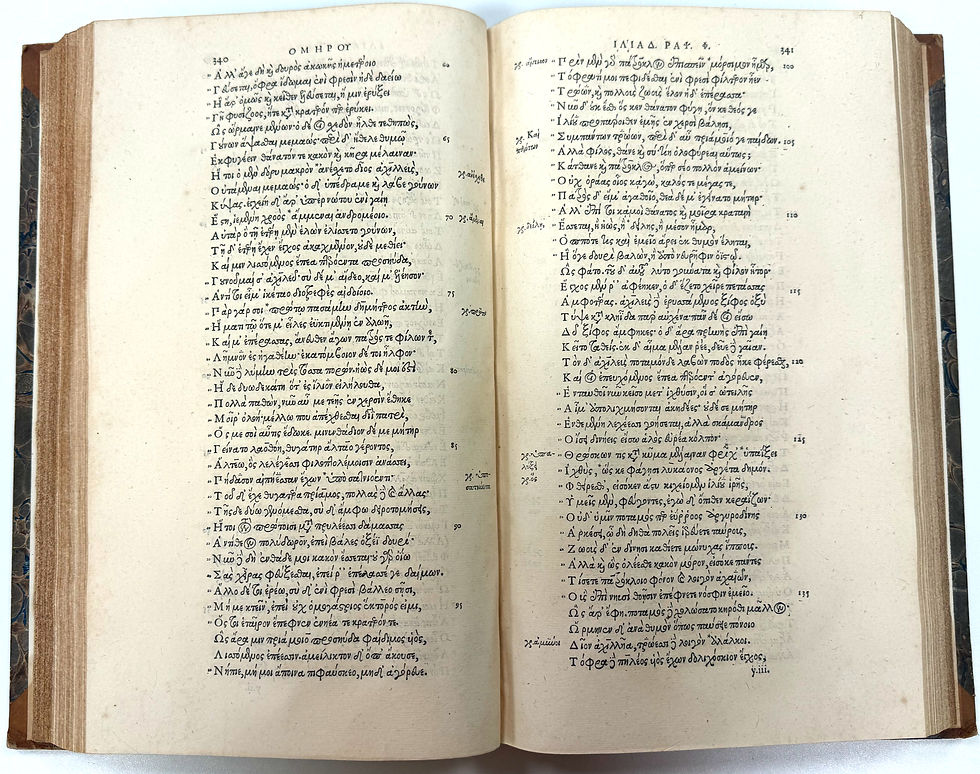 340
ΟΜΗΡΟΥ
" Ἀλλ' ἄγε δὴ καὶ δουρὸς ἀκωκῆς ἡμετέροιο 60
" Γεύσεται, ὄφρα ἴδωμαι ἐνὶ φρεσὶν ἠδὲ δαείω
" Ἢ ἄρ' ὁμῶς καὶ κεῖθεν ἐλεύσεται, ἤ μιν ἐρύξει
" Γῆ φυσίζοος, ἥτε κατὰ κρατερόν περ ἐρύκει.
Ὣς ὥρμαινε μένων· ὁ δέ οἱ σχεδὸν ἦλθε τεθηπὼς,
Γούνων ἅψασθαι μεμαώς· περὶ δ' ἤθελε θυμῷ 65
Ἐκφυγέειν θάνατόν τε κακὸν καὶ κῆρα μέλαιναν·
Ἤτοι ὁ μὲν δόρυ μακρὸν ἀνέσχετο δῖος ἀχιλλεὺς,
Οὐτάμεναι μεμαώς· ὁ δ' ὑπέδραμε καὶ λάβε γούνων
Κύψας· ἐγχείη δ' ἄρ' ὑπὲρ νώτου ἐνὶ γαίῃ
Ἔστη, ἱεμένη χροὸς ἄμμεναι ἀνδρομέοιο. 70
Αὐτὰρ ὁ τῇ ἑτέρῃ μὲν ἑλὼν ἐλίσσετο γούνων,
Τῇ δ' ἑτέρῃ ἔχεν ἔγχος ἀκαχμένον, οὐδὲ μεθίει·
Καί μιν λισσόμενος ἔπεα πτερόεντα προσηύδα,
" Γουνοῦμαί σ' ἀχιλεῦ· σὺ δέ μ' αἴδεο, καί μ' ἐλέησον·
" Ἀντί τοι εἴμ' ἱκέταο διοτρεφὲς αἰδοίοιο. 75
" Πὰρ γὰρ σοὶ πρώτῳ πασάμην δημήτερος ἀκτὴν,
" Ἤματι τῷ ὅτε μ' εἷλες ἐϋκτιμένῃ ἐν ἀλωῇ,
" Καί μ' ἐπέρασσας, ἄνευθεν ἄγων πατρός τε φίλων τε,
" Λῆμνον ἐς ἠγαθέην· ἑκατόμβοιον δέ τοι ἦλφον·
" Νῦν δὲ λύμην τρὶς τόσσα πορών· ἠὼς δέ μοι ἐστὶ 80
" Ἥδε δυωδεκάτη ὅτ' ἐς ἴλιον εἰλήλουθα,
" Πολλὰ παθών, νῦν αὖ με τεῇς ἐν χερσὶν ἔθηκε
" Μοῖρ' ὀλοή· μέλλω που ἀπεχθέσθαι διῒ πατρὶ,
" Ὅς με σοὶ αὖτις ἔδωκε· μινυνθάδιον δέ με μήτηρ
" Γείνατο λαοθόη, θυγάτηρ ἄλταο γέροντος, 85
" Ἄλτεω, ὃς λελέγεσσι φιλοπτολέμοισιν ἀνάσσει,
" Πήδασον αἰπήεσσαν ἔχων
" Τοῦ δ' ἔχε θυγατέρα πρίαμος, πολλὰς δὲ καὶ ἄλλας·
" Τῆς δὲ δύω γενόμεσθα, σὺ δ' ἄμφω δειροτομήσεις,
" Ἤτοι τὸν πρώτοισι μετὰ πρυλέεσσι δάμασσας 90
" Ἀντίθεον πολύδωρον, ἐπεὶ βάλες ὀξέϊ δουρί·
" Νῦν δὲ δὴ ἐνθάδε μοι κακὸν ἔσσεται· οὐ γὰρ ὀΐω
" Σὰς χεῖρας φεύξεσθαι, ἐπεί ῥ' ἐπέλασσέ γε δαίμων.
" Ἄλλο δέ τοι ἐρέω, σὺ δ' ἐνὶ φρεσὶ βάλλεο σῇσι,
" Μή με κτεῖν', ἐπεὶ οὐχ ὁμογάστριος ἕκτορός εἰμι, 95
" Ὅς τοι ἑταῖρον ἔπεφνεν ἐνηέα τε κρατερόν τε.
Ὣς ἄρα μιν πριάμοιο προσηύδα φαίδιμος υἱὸς,
Λισσόμενος ἐπέεσσιν· ἀμείλικτον δ' ὄπ' ἄκουσε,
" Νήπιε, μή μοι ἄποινα πιφαύσκεο, μηδ' ἀγόρευε.
ΙΛΙΑΔ. ΡΑΨ. Φ.
341
" Πρὶν μὲν γὰρ πάτροκλον ἐπισπεῖν μόρσιμον ἦμαρ, 100
" Τόφρα τί μοι πεφιδέσθαι ἐνὶ φρεσὶ φίλτερον ἦεν
" Τρώων, καὶ πολλοὺς ζωοὺς ἕλον ἠδ' ἐπέρασσα·
" Νῦν δ' οὐκ ἔσθ' ὅς κεν θάνατον φύγῃ, ὅν κε θεός γε
" Ἰλίου προπάροιθεν ἐμῆς ἐν χερσὶ βάλῃσι,
" Συμπάντων τρώων, περὶ δ' αὖ πριάμοιό γε παίδων. 105
" Ἀλλὰ φίλος, θάνε καὶ σύ· τίη ὀλοφύρεαι αὕτως;
" Κάτθανε καὶ πάτροκλος, ὅπερ σέο πολλὸν ἀμείνων·
" Οὐχ ὁράας οἷος κἀγὼ, καλός τε μέγας τε,
" Πατρὸς δ' εἴμ' ἀγαθοῖο, θεὰ δέ μ' ἐγείνατο μήτηρ·
" Ἀλλ' ἐπί τοι κἀμοὶ θάνατος καὶ μοῖρα κραταιὴ 110
" Ἔσσεται, ἢ ἠὼς, ἢ δείλης, ἢ μέσον ἦμαρ,
" Ὁππότε τις καὶ ἐμεῖο ἄρει ἐκ θυμὸν ἕληται,
" Ἢ ὅγε δουρὶ βαλὼν, ἢ ἀπὸ νευρῆφιν ὀϊστῷ.
Ὣς φάτο· τοῦ δ' αὐτοῦ λύτο γούνατα καὶ φίλον ἦτορ·
Ἔγχος μέν ῥ' ἀφέηκεν, ὁ δ' ἕζετο χεῖρε πετάσσας 115
Ἀμφοτέρας. ἀχιλεὺς δὲ ἐρυσσάμενος ξίφος ὀξὺ
Τύψε κατὰ κληῖδα παρ' αὐχένα· πᾶν δέ οἱ εἴσω
Δῦ ξίφος ἄμφηκες· ὁ δ' ἄρα πρηνὴς ἐπὶ γαίῃ
Κεῖτο ταθείς· ἐκ δ' αἷμα μέλαν ῥέε, δεῦε δὲ γαῖαν.
Τὸν δ' ἀχιλεὺς ποταμόνδε λαβὼν ποδὸς ἧκε φέρεσθαι, 120
Καί οἱ ἐπευχόμενος ἔπεα πτερόεντ' ἀγόρευεν,
" Ἐνταυθοῖ νῦν κεῖσο μετ' ἰχθύσιν, οἵ σ' ὠτειλῆς
" Αἷμ' ἀπολιχμήσονται ἀκηδέες· οὐδέ σε μήτηρ
" Ἐνθεμένη λεχέεσσι γοήσεται, ἀλλὰ σκάμανδρος
" Οἴσει δινήεις εἴσω ἁλὸς εὐρέα κόλπον· 125
" Θρώσκων τις κατὰ κῦμα μέλαιναν φρῖχ' ὑπαΐξει
" Ἰχθὺς, ὥς κε φάγῃσι λυκάονος ἀργέτα δημόν.
" Φθείρεσθ', εἰσόκεν ἄστυ κιχείομεν ἰλίου ἱρῆς,
" Ὑμεῖς μὲν, φεύγοντες, ἐγὼ δ' ὄπιθεν κεραΐζων·
" Οὐδ' ὑμῖν ποταμός περ ἐΰρροος ἀργυροδίνης 130
" Ἀρκέσει, ᾧ δὴ δηθὰ πολεῖς ἱερεύετε ταύρους,
" Ζωοὺς δ' ἐν δίνῃσι καθίετε μώνυχας ἵππους.
" Ἀλλὰ καὶ ὣς ὀλέεσθε κακὸν μόρον, εἰσόκε πάντες
" Τίσετε πατρόκλοιο φόνον καὶ λοιγὸν ἀχαιῶν,
" Οὓς ἐπὶ νηυσὶ θοῇσιν ἐπέφνετε νόσφιν ἐμεῖο. 135
Ὣς ἄρ' ἔφη. ποταμὸς δὲ χολώσατο κηρόθι μᾶλλον·
Ὥρμηνεν δ' ἀνὰ θυμὸν ὅπως παύσειε πόνοιο
Δῖον ἀχιλλῆα, τρώεσσι δὲ λοιγὸν ἀλάλκοι.
Τόφρα δὲ πηλέος υἱὸς ἔχων δολιχόσκιον ἔγχος,
y.iii.